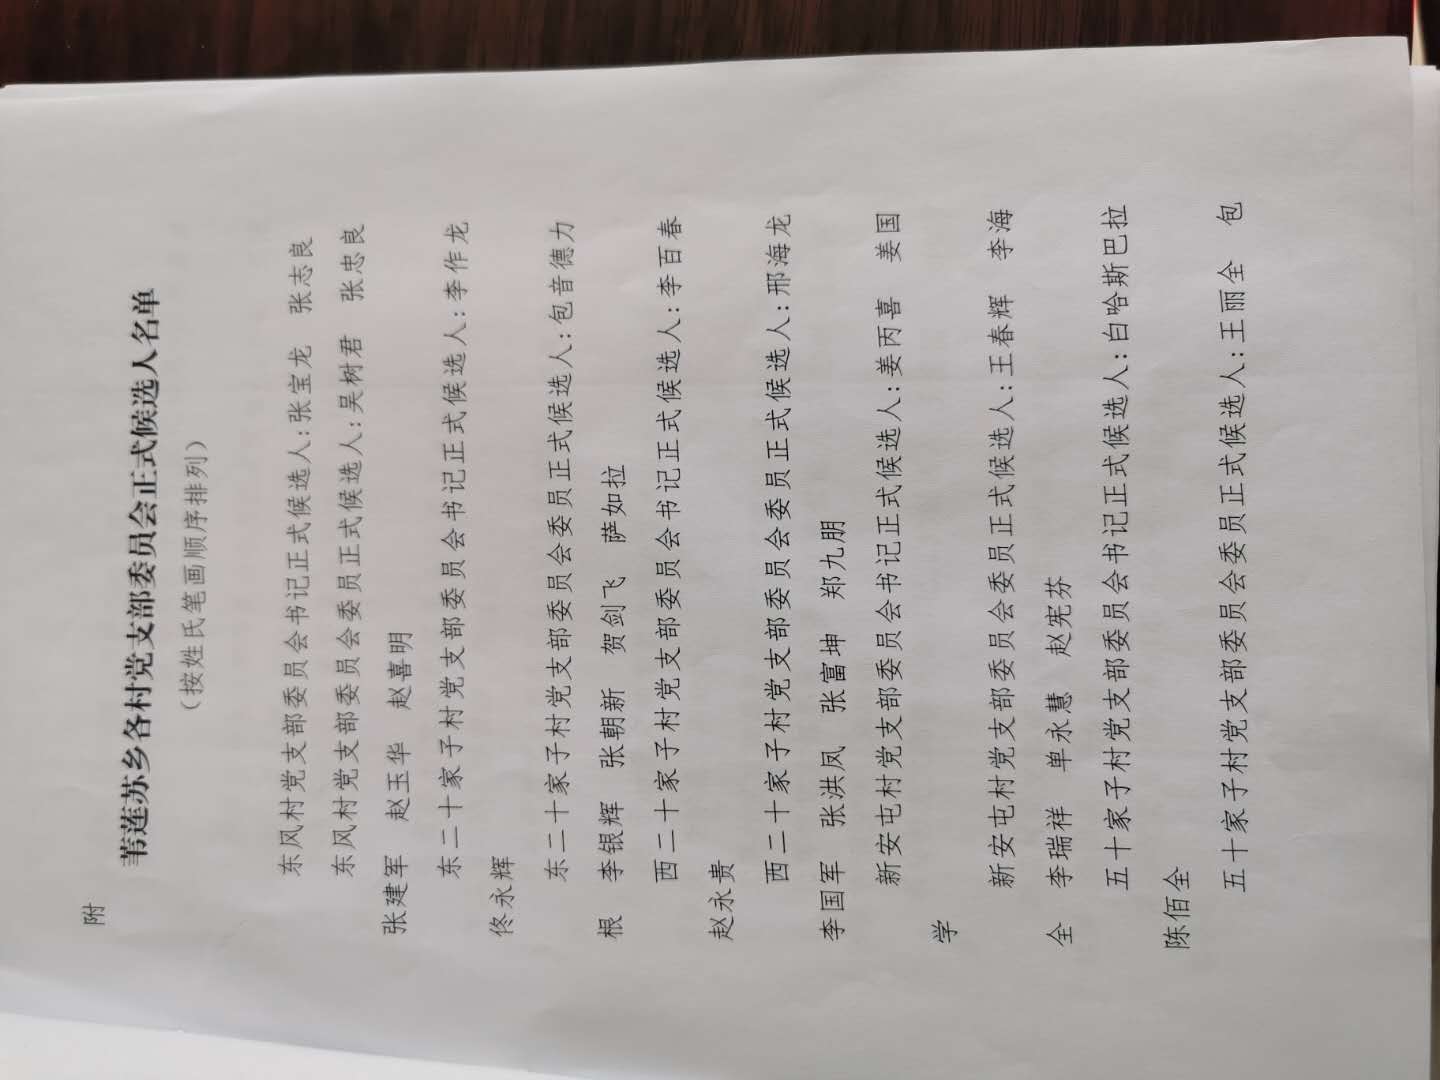 附
苇莲苏乡各村党支部委员会正式候选人名单
（按姓氏笔画顺序排列）
东风村党支部委员会书记正式候选人:张宝龙 张志良
东风村党支部委员会委员正式候选人:吴树君 张忠良
张建军 赵玉华 赵喜明
东二十家子村党支部委员会书记正式候选人:李作龙
佟永辉
东二十家子村党支部委员会委员正式候选人:包音德力
根 李银辉 张朝新 贺剑飞 萨如拉
西二十家子村党支部委员会书记正式候选人:李百春
赵永贵
西二十家子村党支部委员会委员正式候选人:邢海龙
李国军 张洪凤 张富坤 郑九朋
新安屯村党支部委员会书记正式候选人:姜丙喜 姜国
学
新安屯村党支部委员会委员正式候选人:王春辉 李海
全 李瑞祥 单永慧 赵宪芬
五十家子村党支部委员会书记正式候选人:白哈斯巴拉
陈佰全
五十家子村党支部委员会委员正式候选人:王丽全 包